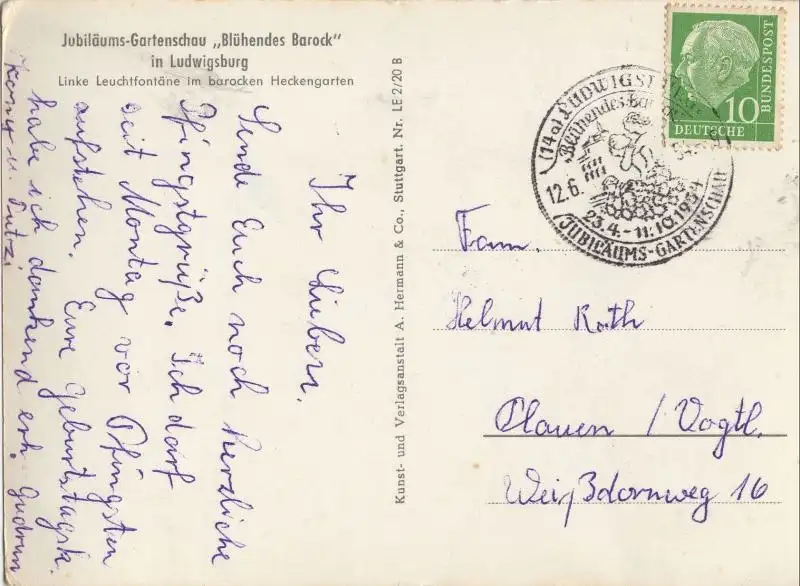 Jubiläums-Gartenschau „Blühendes Barock"
in Ludwigsburg
Linke Leuchtfontäne im barocken Heckengarten
Ihr Lieben.
Sende Euch noch herzliche
Pfingstgrüße. Ich darf
seit Montag vor Pfingsten
aufstehen. Eure Geburtstagsk.
habe ich dankend erh. Gudrun
Kunst- und Verlagsanstalt A. Hermann & Co., Stuttgart. Nr. LE 2/20 B
10
DEUTSCHE
BUNDESPOST
(14a) LUDWIGSBURG
Blühendes Barock
12.6.
23.4.-11.10.1954
JUBILÄUMS-GARTENSCHAU
Fam.
Helmut Roth
Plauen / Vogtl.
Weißdornweg 16